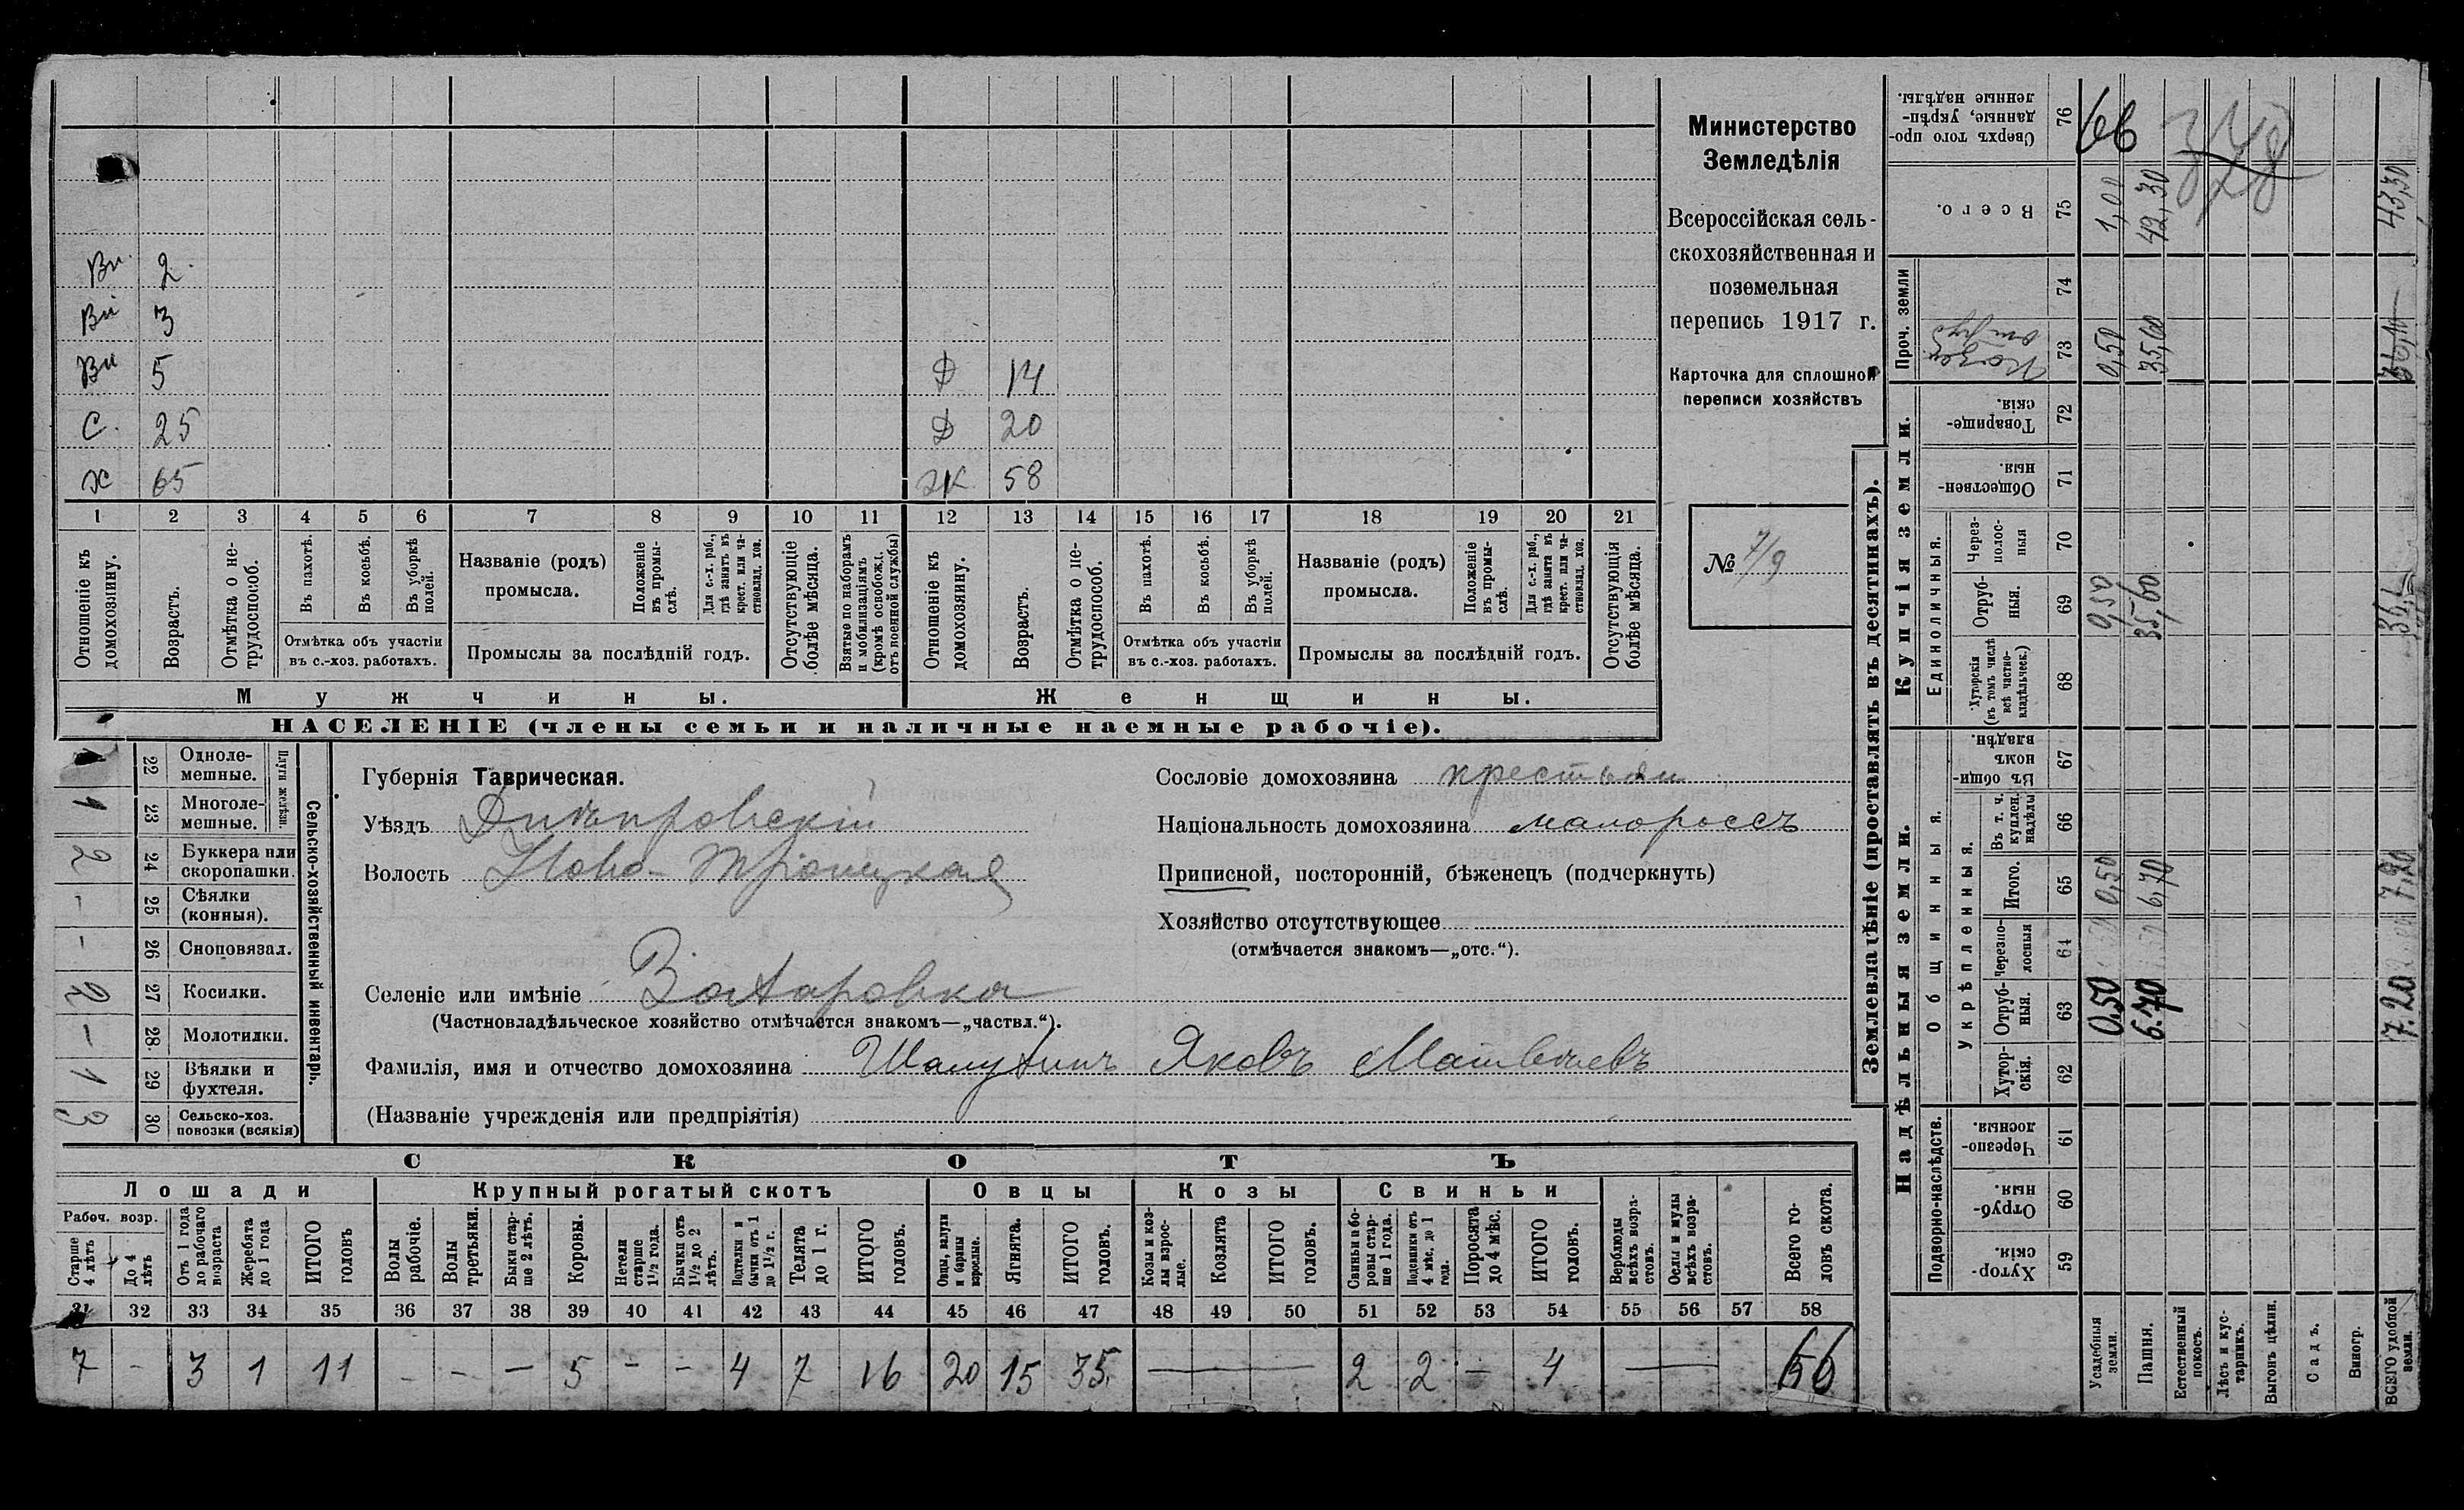 Министерство
Земледѣлія
Всероссійская сель-
скохозяйственная и
поземельная
перепись 1917 г.
Карточка для сплошной
переписи хозяйствъ
№ 7/9
Вн. 2.
Вн 3
Вн 5
Д 14
С. 25
Д 20
х 65
Ж 58
1 2 3 4 5 6 7 8 9 10 11 12 13 14 15 16 17 18 19 20 21
Отношеніе къ домохозяину.
Возрастъ.
Отмѣтка о не-трудоспособ.
Въ пахотѣ.
Въ косьбѣ.
Въ уборкѣ полей.
Отмѣтка объ участіи
въ с.-хоз. работахъ.
Названіе (родъ)
промысла.
Положеніе въ промы-слѣ.
Для с.-х. раб., гдѣ занятъ въ крест. или ча-стновлад. хоз.
Промыслы за послѣдній годъ.
Отсутствующіе болѣе мѣсяца.
Взятые по наборамъ и мобилизаціямъ (кромѣ освобожд. отъ военной службы)
Отношеніе къ домохозяину.
Возрастъ.
Отмѣтка о не-трудоспособ.
Въ пахотѣ.
Въ косьбѣ.
Въ уборкѣ полей.
Отмѣтка объ участіи
въ с.-хоз. работахъ.
Названіе (родъ)
промысла.
Положеніе въ промы-слѣ.
Для с.-х. раб., гдѣ занята въ крест. или ча-стновлад. хоз.
Промыслы за послѣдній годъ.
Отсутствующія болѣе мѣсяца.
Мужчины.
Женщины.
НАСЕЛЕНІЕ (члены семьи и наличные наемные рабочіе).
Сельско-хозяйственный инвентарь.
Плуги желѣзн.
22 Одноле-мешные.
1 23 Многоле-мешные.
2 24 Буккера или скоропашки.
– 25 Сѣялки (конныя).
– 26 Сноповязал.
2 27 Косилки.
– 28 Молотилки.
1 29 Вѣялки и фухтеля.
3 30 Сельско-хоз. повозки (всякія)
Губернія Таврическая.
Уѣздъ Днѣпровскій
Волость Ново-Троицкая
Селеніе или имѣніе
(Частновладѣльческое хозяйство отмѣчается знакомъ—„частвл.“).
Фамилія, имя и отчество домохозяина Яковъ Матвѣевъ
(Названіе учрежденія или предпріятія)
Сословіе домохозяина крестьян
Національность домохозяина малороссъ
Приписной, посторонній, бѣженецъ (подчеркнуть)
Хозяйство отсутствующее
(отмѣчается знакомъ—„отс.“).
СКОТЪ
Лошади
Крупный рогатый скотъ
Овцы
Козы
Свиньи
Рабоч. возр.
Старше 4 лѣтъ
До 4 лѣтъ
Отъ 1 года до рабочаго возраста
Жеребята до 1 года
ИТОГО головъ
Волы рабочіе.
Волы третьяки.
Быки стар-ше 2 лѣтъ.
Коровы.
Нетели старше 1½ года.
Бычки отъ 1½ до 2 лѣтъ.
Подтелки и бычки отъ 1 до 1½ г.
Телята до 1 г.
ИТОГО головъ.
Овцы, валухи и бараны взрослые.
Ягнята.
ИТОГО головъ.
Козы и коз-лы взрос-лые.
Козлята
ИТОГО головъ.
Свиньи и бо-ровы стар-ше 1 года.
Подсвинки отъ 4 мѣс. до 1 года.
Поросята до 4 мѣс.
ИТОГО головъ.
Верблюды всѣхъ возра-стовъ.
Ослы и мулы всѣхъ возра-стовъ.
Всего го-ловъ скота.
31 32 33 34 35 36 37 38 39 40 41 42 43 44 45 46 47 48 49 50 51 52 53 54 55 56 57 58
7 – 3 1 11 – – – 5 – – 4 7 16 20 15 35 — 2 2 – 4 — 66
Землевладѣніе (проставлять въ десятинахъ).
Надѣльныя земли.
Купчія земли.
Проч. земли
Подворно-наслѣдств.
Общинныя.
Укрѣпленныя.
Единоличныя.
Хутор-скія. 59
Отруб-ныя. 60
Черезпо-лосныя. 61
Хутор-скія. 62
Отруб-ныя. 63
Черезпо-лосныя 64
Итого. 65
Въ т. ч. куплен. надѣлы 66
Въ общи-номъ владѣн. 67
Хуторскія (въ томъ числѣ всѣ частно-владѣльческ.) 68
Отруб-ныя. 69
Через-полос-ныя 70
Обществен-ныя. 71
Товарище-скія. 72
73
74
Всего. 75
Сверхъ того про-данные, укрѣп-ленные надѣлы. 76
Усадебныя земли. 0.50 0,50 0,50 0,50 1,00
Пашня. 6.70 6,70 35,60 35,60 42,30
Естественный покосъ.
Лѣсъ и кус-тарникъ.
Выгонъ цѣлин.
Садъ.
Виногр.
ВСЕГО удобной земли. 7.20 7,20 43,30
66